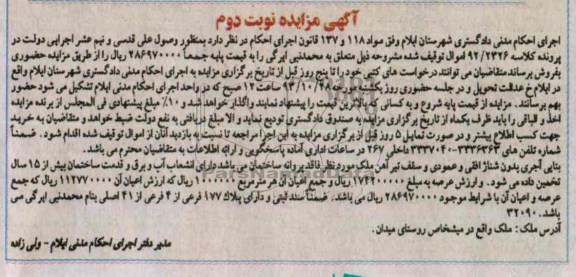 آگهی مزایده نوبت دوم
اجرای احکام مدنی دادگستری شهرستان ایلام وفق مواد ۱۱۸ و ۱۳۷ قانون اجرای احکام در نظر دارد بمنظور وصول علی قدسی و نیم عشر اجرایی دولت در
پرونده کلاسه ۹۲/۲۳۲۶ اموال توقیف شده مشروحه ذیل متعلق به محمدنبی ایرگی را به قیمت پایه جمعاً ۲۸۶۹۷۰۰۰۰ ریال را از طریق مزایده حضوری
بفروش برساند متقاضیان می توانند درخواست های کتبی خود را تا پنج روز قبل از تاریخ برگزاری مزایده به اجرای احکام مدنی دادگستری شهرستان ایلام واقع
در ایلام خ عدالت تحویل و در جلسه حضوری روز یکشنبه مورخه ۹۳/۱۰/۲۸ ساعت ۱۲ صبح که در واحد اجرای احکام مدنی ایلام تشکیل می شود حضور
بهم رسانند. مزایده از قیمت پایه شروع و به کسانی که بالاترین قیمت را پیشنهاد نمایند واگذار خواهد شد و ۱۰٪ مبلغ پیشنهادی فی المجلس از برنده مزایده
اخذ و الباقی را باید ظرف یکماه از تاریخ برگزاری مزایده به صندوق دادگستری تودیع نماید و الا مبلغ دریافتی به نفع دولت ضبط خواهد و متقاضیان به خرید
جهت کسب اطلاع بیشتر و در صورت تمایل ۵ روز قبل از برگزاری مزایده به این اجرا مراجعه تا نسبت به بازدید آنان از اموال توقیف شده اقدام شود. ضمناً
شماره تلفن های ۳۳۳۶۳۶۳-۳۳۳۷۰۴۰ داخلی ۲۶۷ در ساعات اداری آماده پاسخگویی و ارائه اطلاعات به متقاضیان محترم می باشد.
بنای آجری بدون شناژ افقی و عمودی و سقف تیر آهن ملک مورد نظر فاقد پروانه ساختمان می باشد دارای انشعاب آب و برق و قدمت ساختمان بیش از ۱۵ سال
تخمین داده می شود. و ارزش عرصه به مبلغ ۱۷۴۲۰۰۰۰۰ ریال و جمع اعیان آن هر مترمربع ۱۰۰۰۰۰۰ ریال که ارزش اعیان آن ۱۱۲۷۷۰۰۰۰ ریال که جمع
عرصه و اعیان آن با شرایط موجود ۲۸۶۹۷۰۰۰۰ ریال می باشد. ضمناً سند ثبتی و دارای پلاک ۱۷۷ فرعی از ۴ فرعی از ۴۱ اصلی بنام محمدنبی ایرگی می
باشد. ۳۲۰۹۰
آدرس ملک: ملک واقع در میشخاص روستای میدان.
مدیر دفتر اجرای احکام مدنی ایلام - ولی زاده